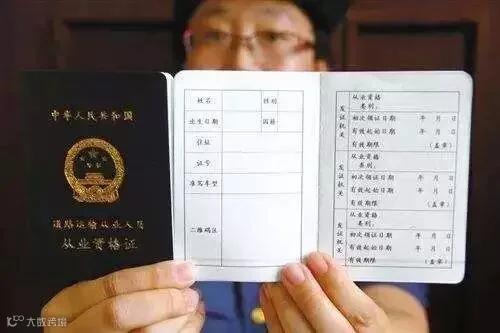 中华人民共和国
道路运输从业人员
从业资格证
姓名 性别
出生日期 国籍
住址
证号
准驾车型
二维码区
发证机关
从业资格类别:
初次领证日期 年 月 日
有效起始日期 年 月 日
有效期限 (盖章)
发证机关
从业资格类别:
初次领证日期 年 月 日
有效起始日期 年 月 日
有效期限 (盖章)
发证机关
从业资格类别:
初次领证日期 年 月 日
有效起始日期 年 月 日
有效期限 (盖章)
大数跨境